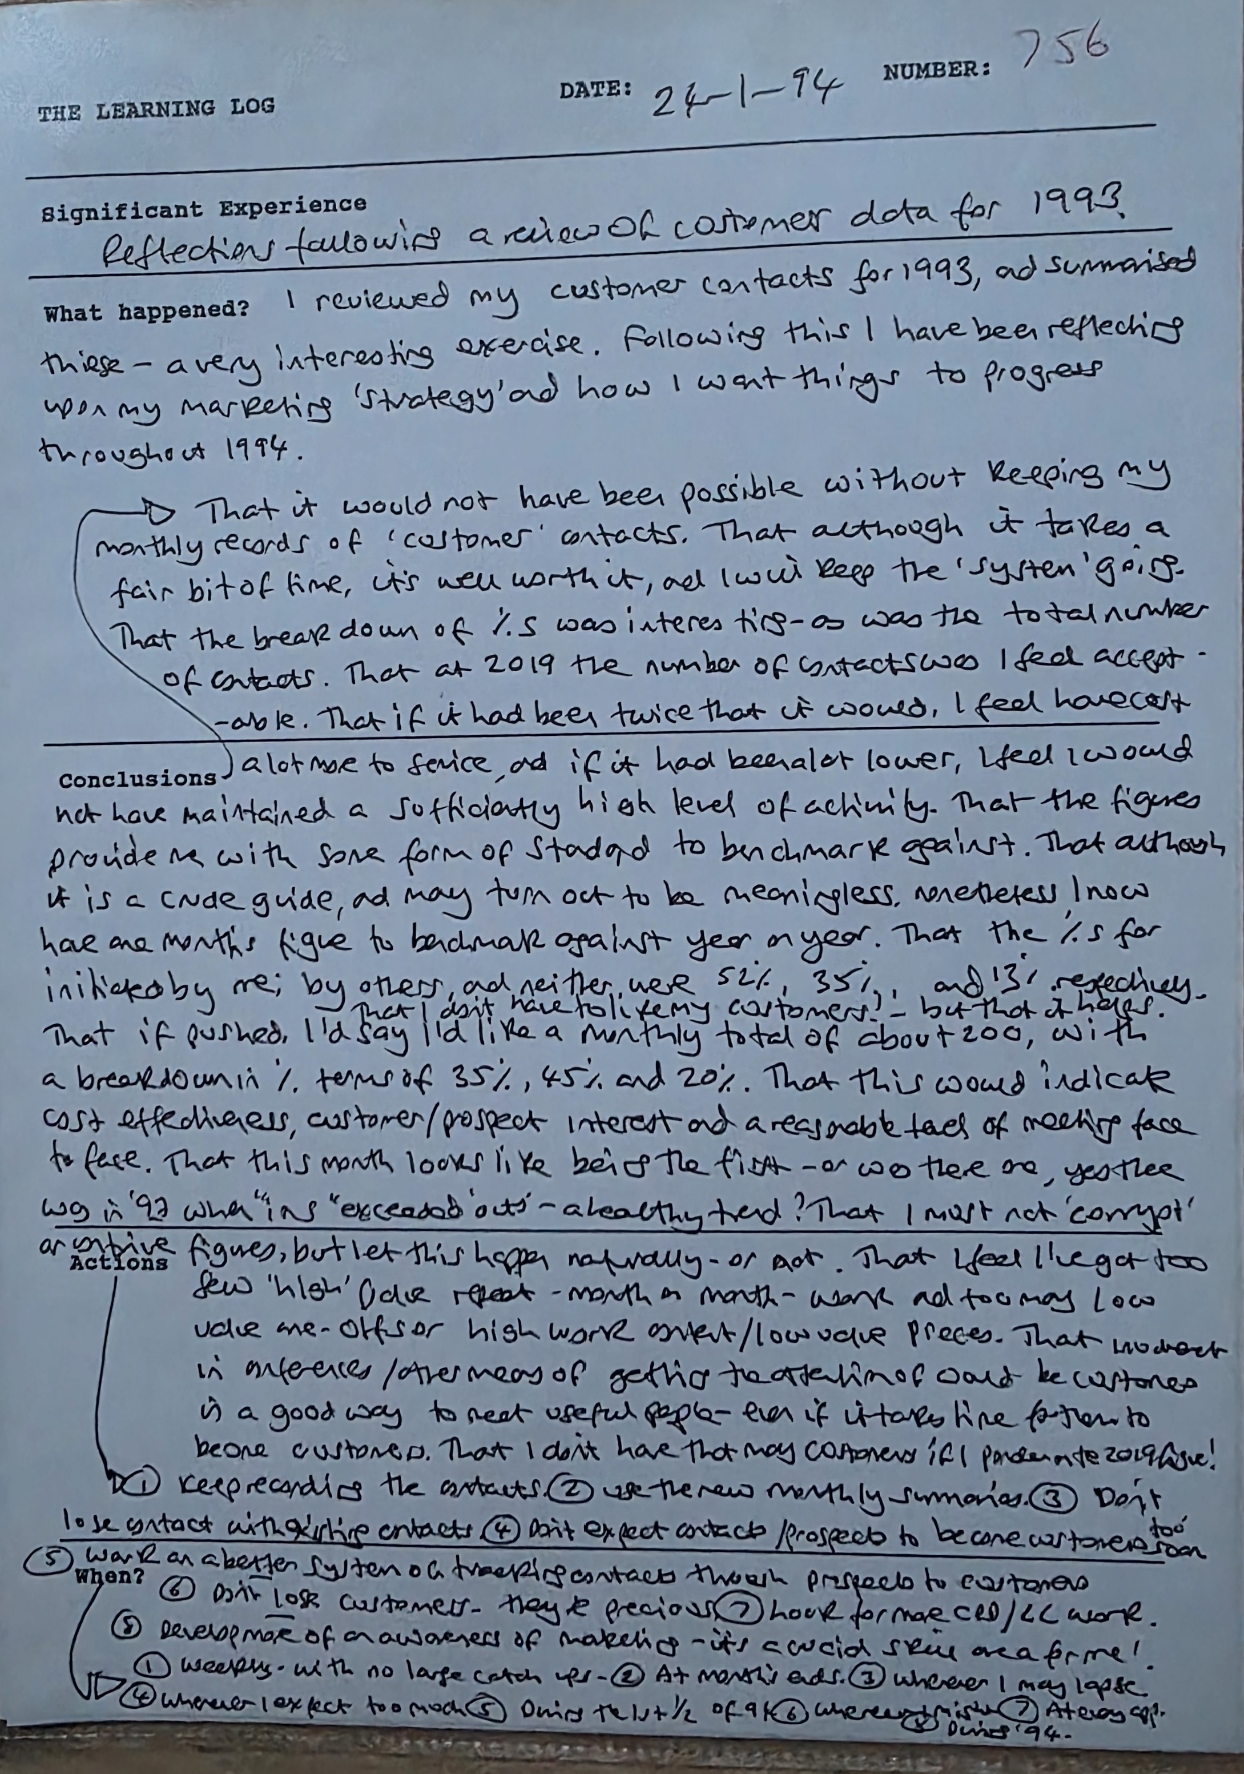 THE LEARNING LOG DATE: 24-1-94 NUMBER: 756
Significant Experience
Reflections following a review of customer data for 1993.
What happened? I reviewed my customer contacts for 1993, ad summarised
these - a very interesting exercise. Following this I have been reflecting
upon my marketing 'strategy' ad how I want things to progress
throughout 1994.
That it would not have been possible without keeping my
monthly records of 'customer' contacts. That although it takes a
fair bit of time, it's well worth it, ad I will keep the 'system' going.
That the breakdown of %s was interesting - as was the total number
of contacts. That at 2019 the number of contacts was I feel accept-
-able. That if it had been twice that it would, I feel have cost
Conclusions a lot more to service, ad if it had been a lot lower, I feel I would
not have maintained a sufficiently high level of activity. That the figures
provide me with some form of standard to benchmark against. That although
it is a crude guide, ad may turn out to be meaningless, nonetheless I now
have one month's figure to benchmark against year on year. That the %s for
initiated by me; by others, ad neither were 52%, 35%, and 13% respectively.
That I don't have to like my customers! - but that it helps.
That if pushed, I'd say I'd like a monthly total of about 200, with
a breakdown in % terms of 35%, 45% and 20%. That this would indicate
cost effectiveness, customer/prospect interest ad a reasonable level of meeting face
to face. That this month looks like being the first - or was there one, yes there
was in '93 when "ins" exceeded 'outs' - a healthy trend? That I must not 'corrupt'
or contrive figures, but let this happen naturally - or not. That I feel I've got too
Actions
few 'high' value repeat - month on month - work ad too many low
value one-offs or high work content/low value pieces. That
in conferences/other means of getting the attention of could be customers
is a good way to meet useful people - even if it takes time for them to
become customers. That I don't have that many customers if I ponder on the 2019 figure!
① Keep recording the contacts. ② use the new monthly summaries. ③ Don't
lose contact with existing contacts ④ Don't expect contacts/prospects to become customers too soon
⑤ Work on a better system of tracking contacts through prospects to customers
When?
⑥ Don't lose customers - they're precious ⑦ Look for more CPD/LC work.
⑧ Develop more of an awareness of marketing - it's a crucial skill area for me!
① Weekly - with no large catch ups - ② At month's ends. ③ Whenever I may lapse
④ Whenever I expect too much ⑤ During the 1st 1/2 of 94 ⑥ ⑦ At every opp.
⑧ During '94.